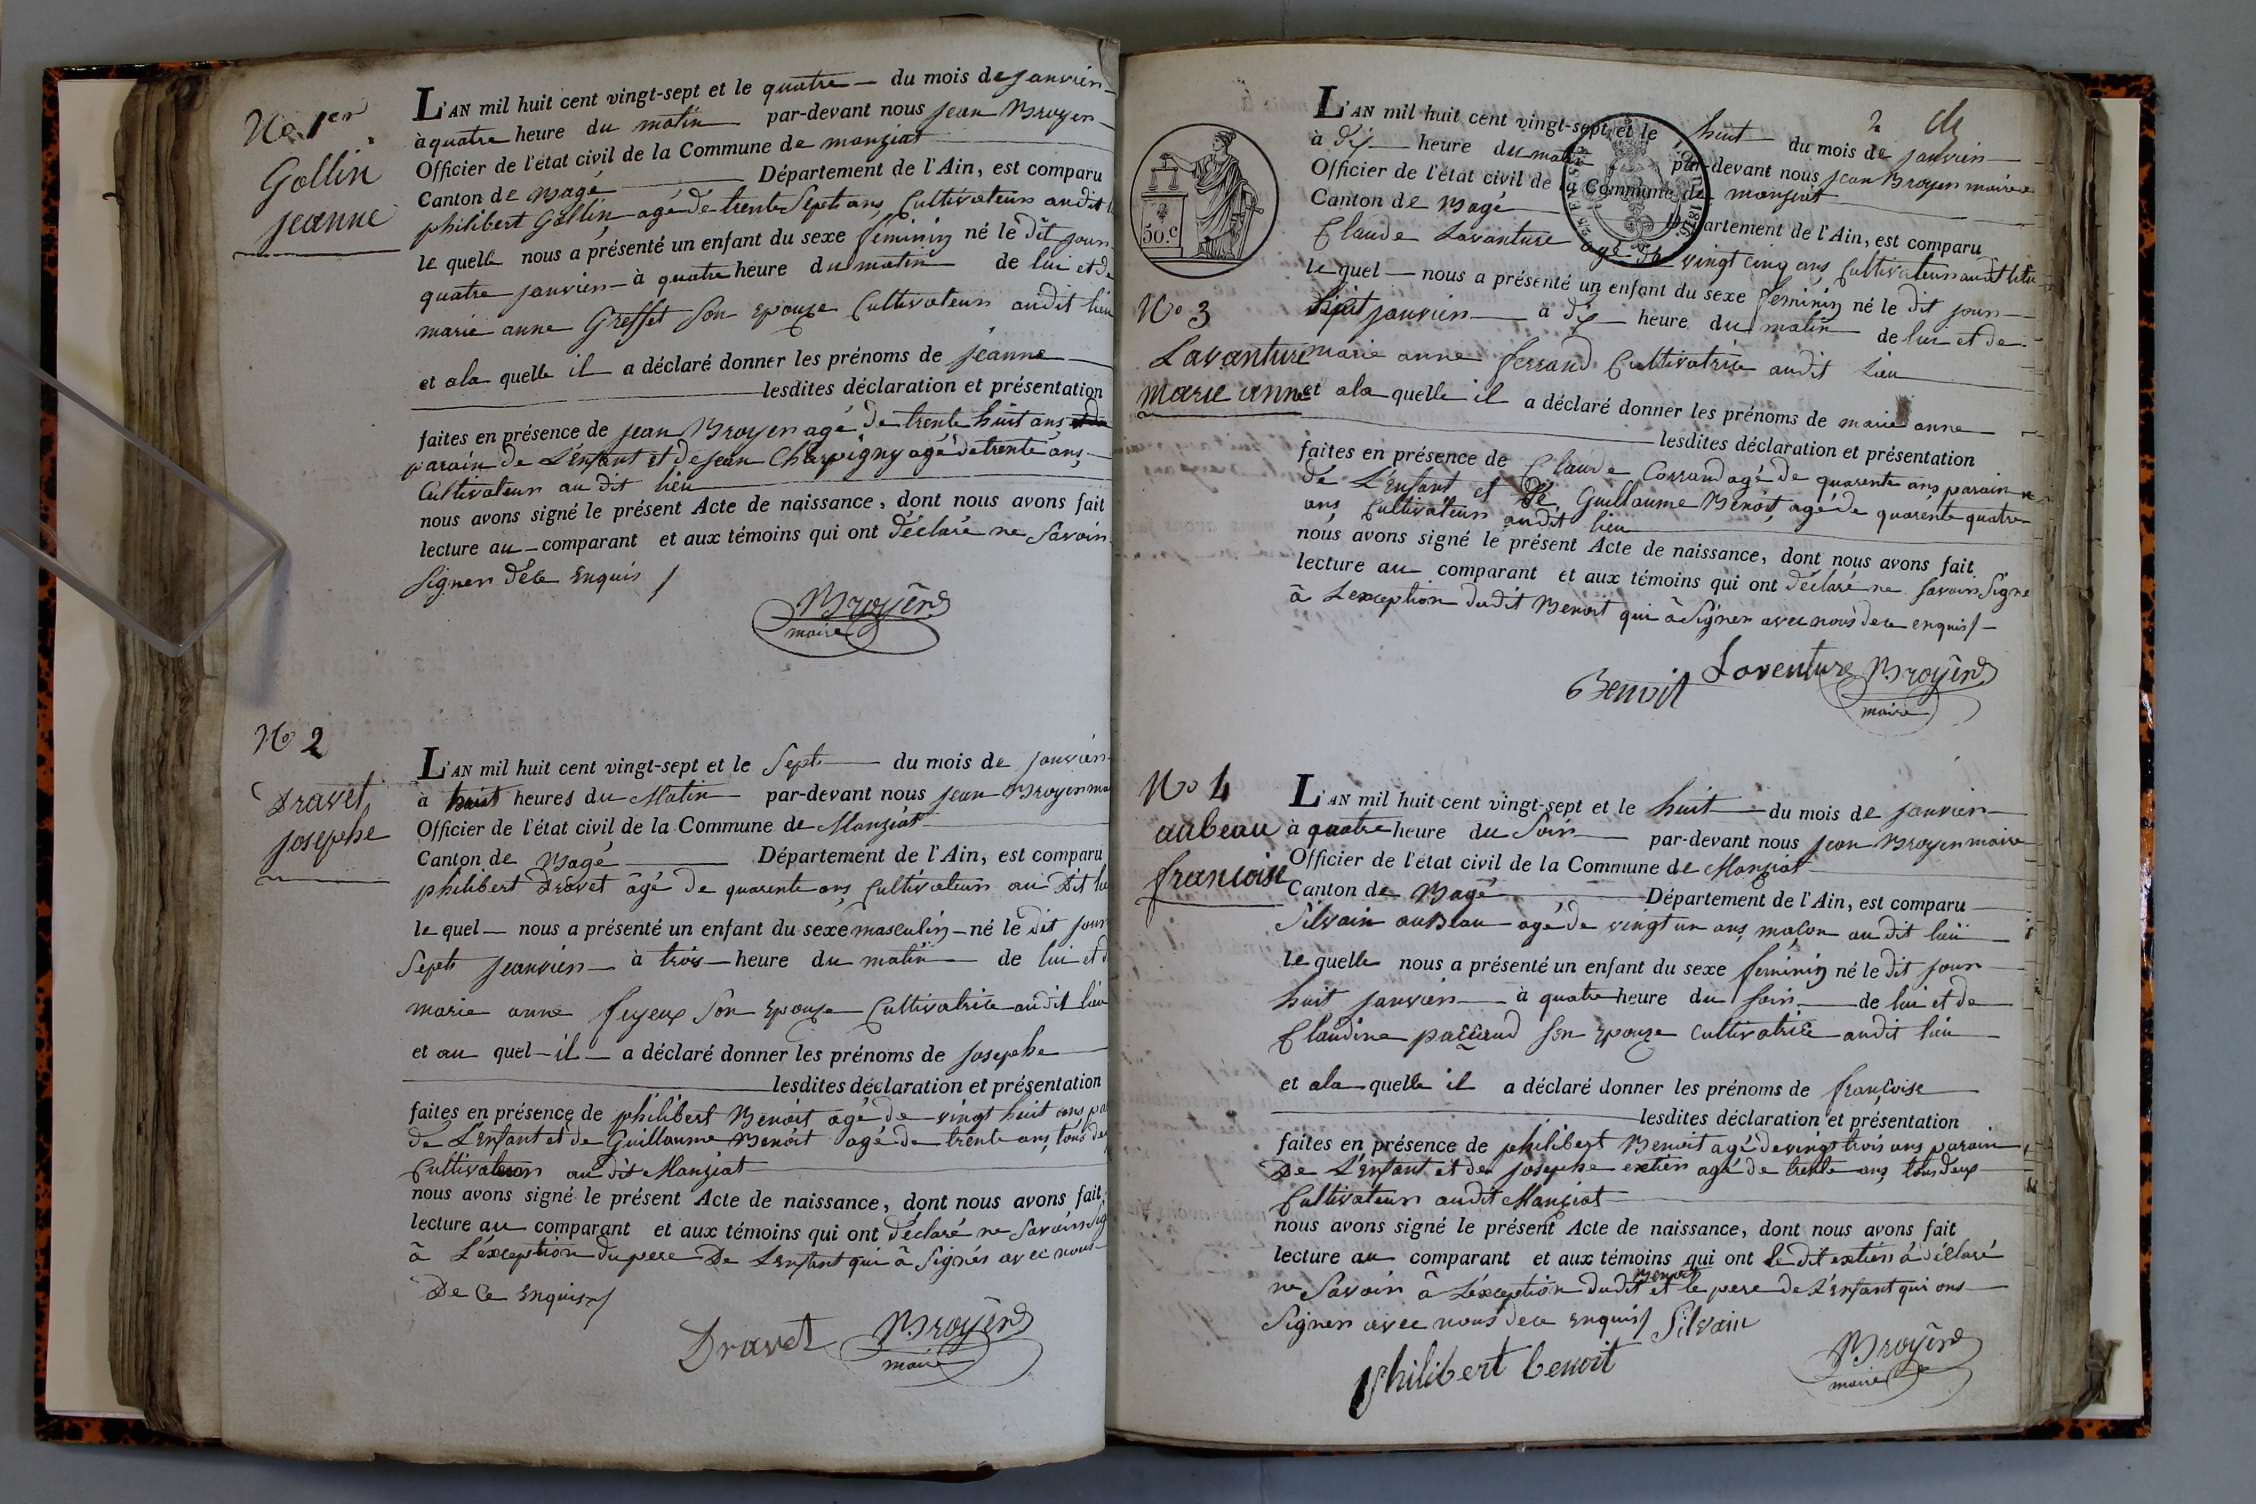 No. 1er
Gollin
jeanne
L'AN mil huit cent vingt-sept et le quatre du mois de janvier
à quatre heure du matin par-devant nous jean Broyer
Officier de l'état civil de la Commune de manziat
Canton de Bagé Département de l'Ain, est comparu
philibert Gollin agé de trente Sept ans Cultivateur audit
le quelle nous a présenté un enfant du sexe féminin né le dit jour
quatre janvier à quatre heure du matin de lui et de
marie anne Greffet son epouze Cultivateur audit lieu
et ala quelle il a déclaré donner les prénoms de jeanne
lesdites déclaration et présentation
faites en présence de jean Broyer agé de trente huit ans
parain de L'enfant et de jean Charpigny agé de trente ans
Cultivateur au dit lieu
nous avons signé le présent Acte de naissance, dont nous avons fait
lecture au comparant et aux témoins qui ont déclaré ne Savoir
Signer dece enquis
Broyer
maire
No 2
Dravet
josephe
L'AN mil huit cent vingt-sept et le Sept du mois de janvier
à huit heures du Matin par-devant nous jean Broyer ma
Officier de l'état civil de la Commune de Manziat
Canton de Bagé Département de l'Ain, est comparu
philibert Dravet âgé de quarente ans Cultivateur au Dit lieu
le quel nous a présenté un enfant du sexe masculin né le dit jour
Sept jeanvier à trois heure du matin de lui et d
marie anne feyeux son epouze Cultivatrice audit lieu
et au quel il a déclaré donner les prénoms de josephe
lesdites déclaration et présentation
faites en présence de philibert Benoit agé de vingt huit ans pa
de L'enfant et de Guillaume Benoit agé de trente ans tous de
Cultivateurs au dit Manziat
nous avons signé le présent Acte de naissance, dont nous avons fait
lecture au comparant et aux témoins qui ont déclaré ne Savoir Sig
à L'exception du pere De L'enfant qui à Signér avec nous
De Ce enquis
Dravet
Broyer
maire
2
50.c
No 3
Lavanture
marie anne
L'AN mil huit cent vingt-sept et le huit du mois de janvier
à dix heure du matin par-devant nous jean Broyer maire
Officier de l'état civil de la Commune de manziat
Canton de Bagé Département de l'Ain, est comparu
Claude Lavanture agé de vingt cinq ans Cultivateur audit lieu
le quel nous a présenté un enfant du sexe feminin né le dit jour
huit janvier à dix heure du matin de lui et de
marie anne ferrand Cultivatrice audit Lieu
et ala quelle il a déclaré donner les prénoms de marie anne
lesdites déclaration et présentation
faites en présence de Claude Corrand agé de quarente ans parain
de L'enfant et de Guillaume Benoit agé de quarénte quatre
ans Cultivateur audit lieu
nous avons signé le présent Acte de naissance, dont nous avons fait
lecture au comparant et aux témoins qui ont déclaré ne savoir Signe
à L'exception dudit Benoit qui à Signer avec nous dece enquis
Benoit
Laventure
Broyer
maire
No 4
aubeau
francoise
L'AN mil huit cent vingt-sept et le huit du mois de janvier
à quatre heure du Soir par-devant nous jean Broyer maire
Officier de l'état civil de la Commune de Manziat
Canton de Bagé Département de l'Ain, est comparu
Silvain auBeau agé de vingt un ans maçon au dit lieu
le quelle nous a présenté un enfant du sexe feminin né le dit jour
huit janvier à quatre heure du soir de lui et de
Claudine paccaud son epouze cultivatrice audit lieu
et ala quelle il a déclaré donner les prénoms de francoise
lesdites déclaration et présentation
faites en présence de philibert Benoit agé de vingt trois ans parain
De L'enfant et de josephe extier agé de trente ans tous deux
Cultivateur audit Manziat
nous avons signé le présent Acte de naissance, dont nous avons fait
lecture au comparant et aux témoins qui ont le dit extier à déclaré
ne Savoir à L'éxception dudit Benoit et le pere de L'enfant qui ons
Signer avec nous dece enquis Silvain
Philibert benoit
Broyer
maire